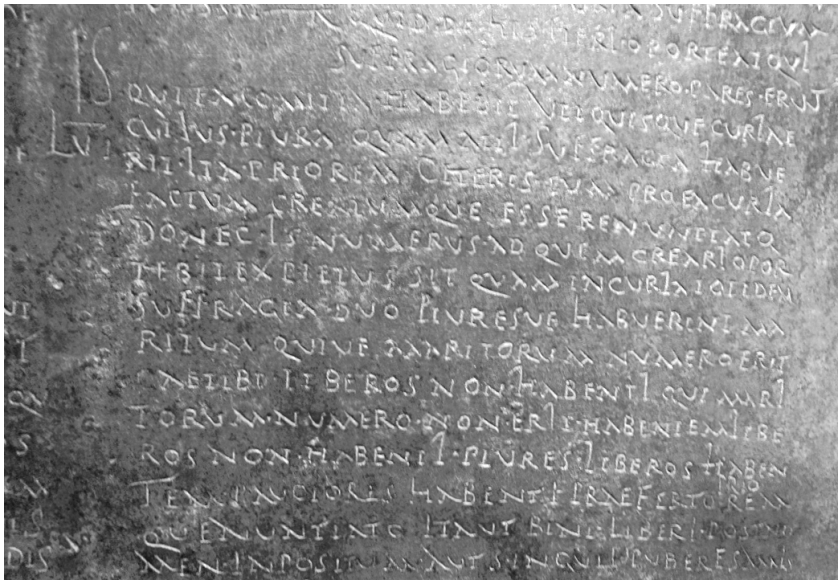 SUFFRAGIUM
QUID DE HIS FIERI OPORTEAT QUI
SUFFRAGIORUM NUMERO PARES ERUNT
IS
QUI EA COMITIA HABEBIT UTI QUISQUE CURIAE
LVI CUIUS PLURA QUAM ALII SUFFRAGIA HABUE
RIT ITA PRIOREM CETERIS EUM PRO EA CURIA
FACTUM CREATUMQUE ESSE RENUNTIATO
DONEC IS NUMERUS AD QUEM CREARI OPOR
TEBIT EXPLETUS SIT QUAM IN CURIA TOTIDEM
SUFFRAGIA DUO PLURESVE HABUERINT MA
RITUM QUIVE MARITORUM NUMERO ERIT
CAELIBI LIBEROS NON HABENTI QUI MARI
TORUM NUMERO NON ERIT HABENTEM LIBE
ROS NON HABENTI PLURES LIBEROS HABEN
TEM PAUCIORES HABENTI PRAEFERTO
QUE NUNTIATO ITA UT BINI LIBERI POST NO
MEN INPOSITUM AUT SINGULI PUBERES AMIS